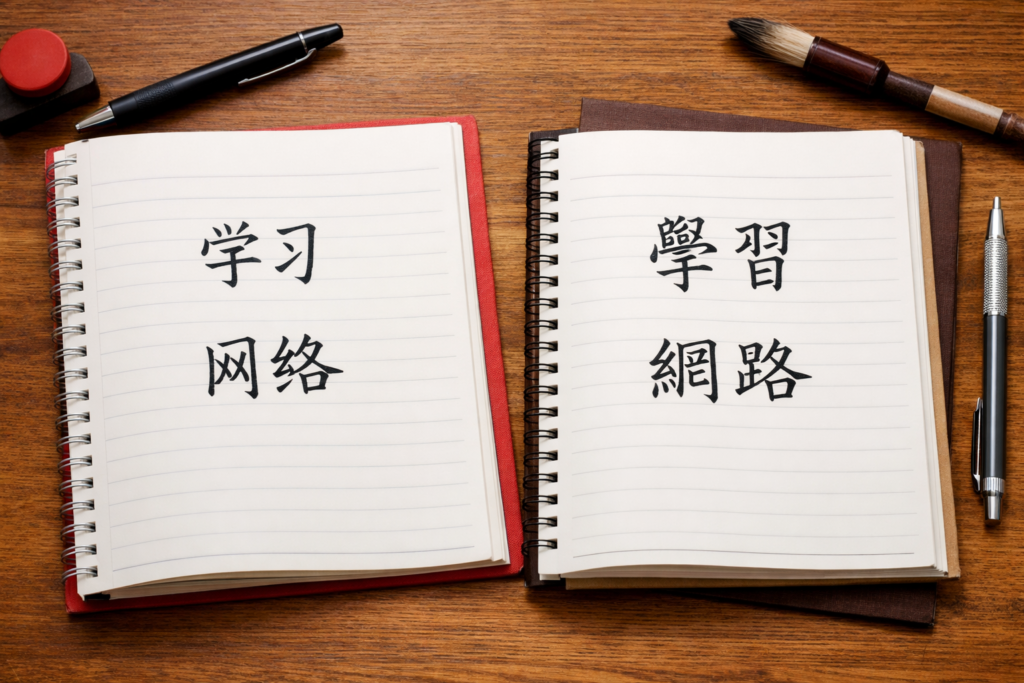 学习
网络
學習
網路